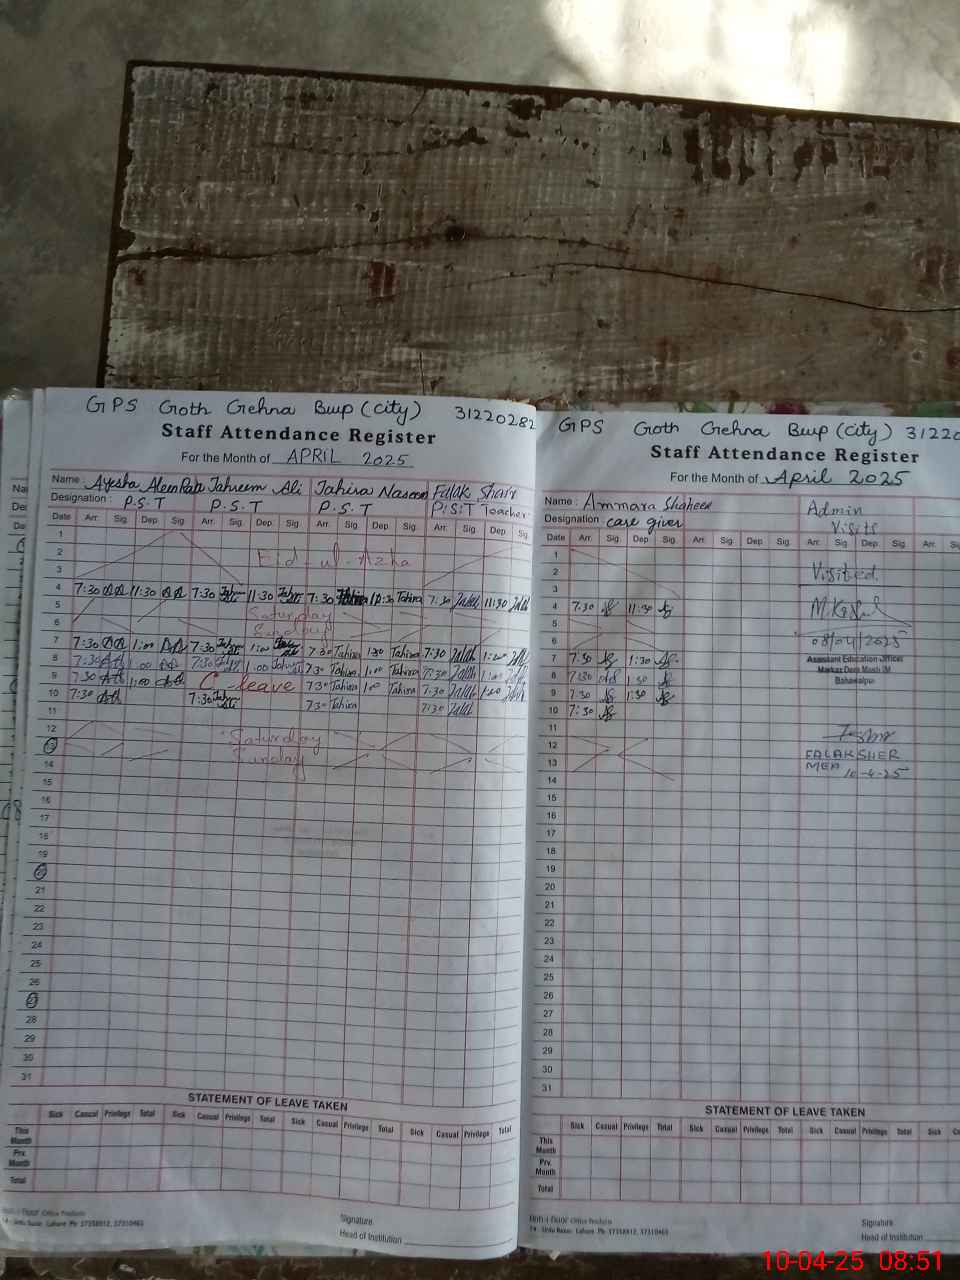 GPS Goth Gehna Bwp (City) 31220282
Staff Attendance Register
For the Month of APRIL 2025
Name : Ayesha Aleem Tahreem Ali Tahira Naseem Falak Shair
Designation : P.S.T P.S.T P.S.T P.S.T Teacher
Date Arr. Sig. Dep. Sig. Arr. Sig. Dep. Sig. Arr. Sig. Dep. Sig. Arr. Sig. Dep. Sig.
1
2 Eid-ul-Azha
3
4 7:30 11:30 7:30 11:30 7:30 Tahira 11:30 Tahira 7:30 11:30
5 Saturday
6 Sunday
7 7:30 1:00 7:30 1:00 7:30 Tahira 1:30 Tahira 7:30
8 7:30 1:00 7:30 1:00 7:30 Tahira 1:00 Tahira 7:30
9 7:30 1:00 C-leave 7:30 Tahira 1:00 Tahira 7:30
10 7:30 7:30 7:30 Tahira 7:30
11
12 Saturday
13 Sunday
14
15
16
17
18
19
20
21
22
23
24
25
26
27
28
29
30
31
STATEMENT OF LEAVE TAKEN
Sick Casual Privilege Total Sick Casual Privilege Total Sick Casual Privilege Total Sick Casual Privilege Total
This Month
Prv. Month
Total
Office Products
Urdu Bazar Lahore Ph: 37358912, 37310465
Signature
Head of Institution
GPS Goth Gehna Bwp (City) 3122
Staff Attendance Register
For the Month of April 2025
Name : Ammara Shaheen Admin
Designation care giver Visits
Date Arr. Sig. Dep. Sig. Arr. Sig. Dep. Sig. Arr. Sig. Dep. Sig. Arr.
1
2 Visited.
3
4 7:30 11:30
5
6 08/04/2025
7 7:30 1:30 Assistant Education Officer
8 7:30 1:30 Bahawalpur
9 7:30 1:30
10 7:30
11
12 FALAK SHER
13 MEA 10-4-25
14
15
16
17
18
19
20
21
22
23
24
25
26
27
28
29
30
31
STATEMENT OF LEAVE TAKEN
Sick Casual Privilege Total Sick Casual Privilege Total Sick Casual Privilege Total Sick
This Month
Prv. Month
Total
Office Products
Urdu Bazar Lahore Ph: 37358912, 37310465
Signature
Head of Institution
10-04-25 08:51